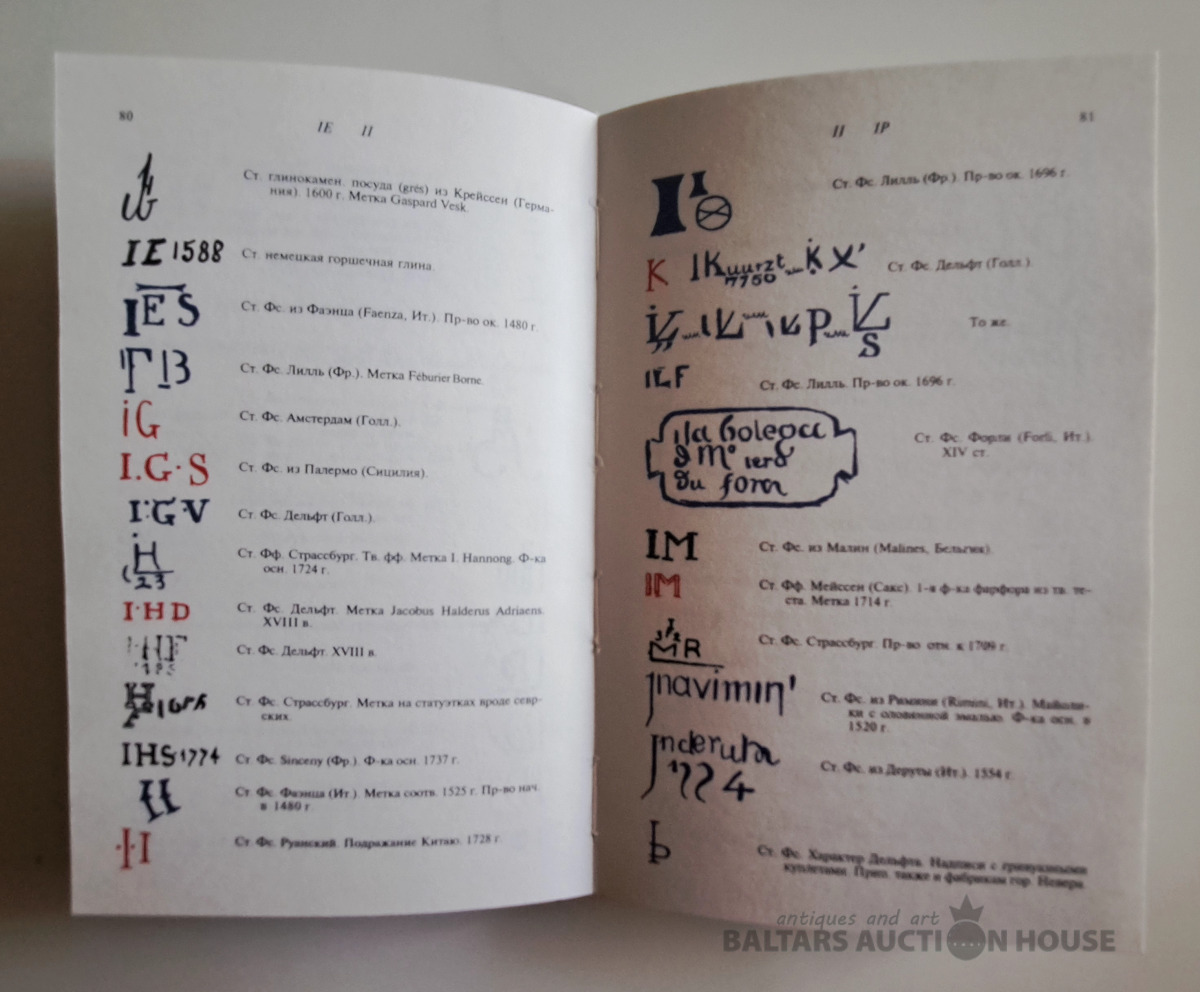 80
IE II
Ст. глинокамен. посуда (grès) из Крейссен (Герма-
ния). 1600 г. Метка Gaspard Vesk.
IE 1588
Ст. немецкая горшечная глина.
IES
Ст. Фс. из Фаэнца (Faenza, Ит.). Пр-во ок. 1480 г.
Ст. Фс. Лилль (Фр.). Метка Féburier Borne.
iG
Ст. Фс. Амстердам (Голл.).
I.G·S
Ст. Фс. из Палермо (Сицилия).
I·G·V
Ст. Фс. Дельфт (Голл.).
23
Ст. Фф. Страссбург. Тв. фф. Метка I. Hannong. Ф-ка
осн. 1724 г.
I·HD
Ст. Фс. Дельфт. Метка Jacobus Halderus Adriaens.
XVIII в.
Ст. Фс. Дельфт. XVIII в.
Ст. Фс. Страссбург. Метка на статуэтках вроде севр-
ских.
IHS1774
Ст. Фс. Sinceny (Фр.). Ф-ка осн. 1737 г.
Ст. Фс. Фаэнца (Ит.). Метка соотв. 1525 г. Пр-во нач.
в 1480 г
Ст. Фс. Руанский. Подражание Китаю. 1728 г.
81
II IP
Ст. Фс. Лилль (Фр.). Пр-во ок. 1696 г.
K IKuurzt K
7750
Ст. Фс. Дельфт (Голл.)
То же.
Ст. Фс. Лилль. Пр-во ок. 1696 г.
Ст. Фс. Форли (Forli, Ит.).
XIV ст.
IM
Ст. Фс. из Малин (Malines, Бельгия).
IM
Ст. Фф. Мейссен (Сакс). 1-я ф-ка фарфора из тв. те-
ста. Метка 1714 г.
MR
Ст. Фс. Страссбург. Пр-во отн. к 1709 г.
Jnavimin'
Ст. Фс. из Римини (Rimini, Ит.). Майоли-
ки с оловенной эмалью. Ф-ка осн. в
1520 г.
Jnderuta
1774
Ст. Фс. из Деруты (Ит.). 1554 г.
Ст. Фс. Характер Дельфта. Надписи с гривуазными
куплетами. Прип. также и фабрикам гор. Невера.
antiques and art
BALTARS AUCTION HOUSE